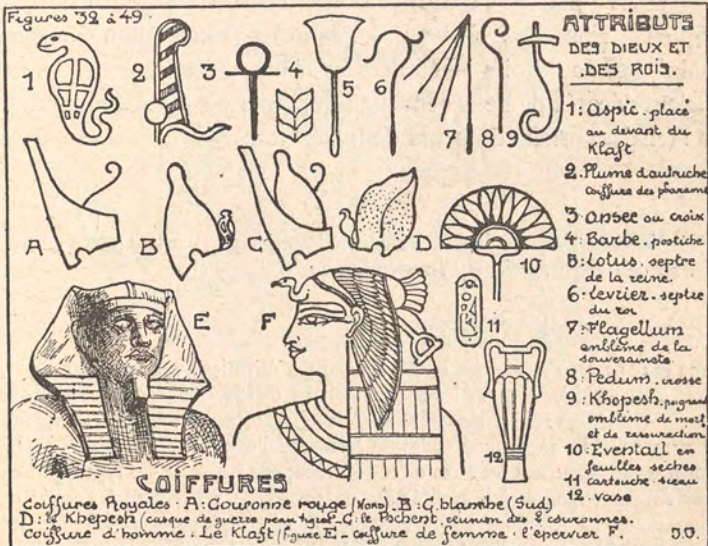 Figures 32 à 49.
1
2
3
4
5
6
7
8
9
A
B
C
D
10
E
F
11
12
ATTRIBUTS
DES DIEUX ET
DES ROIS.
1: aspic. placé
au devant du
Klaft
2. Plume d'autruche
coiffure des pharaons
3 ansee ou croix
4: Barbe. postiche
5: Lotus. septre
de la reine.
6: Levrier. septre
du roi
7: Flagellum
emblème de la
souveraineté
8: Pedum. crosse
9: Khopesh. poignard
emblème de mort
et de ressurection
10: Eventail en
feuilles sèches
11 cartouche. sceau
12. vase
COIFFURES
Coiffures Royales. A: Couronne rouge (Nord). B: C. blanche (Sud)
D: le Khepesh (casque de guerre peau tigre). C: le Pschent, reunion des 2 couronnes.
Coiffure d'homme: Le Klaft (figure E - coiffure de femme: l'epervier F.